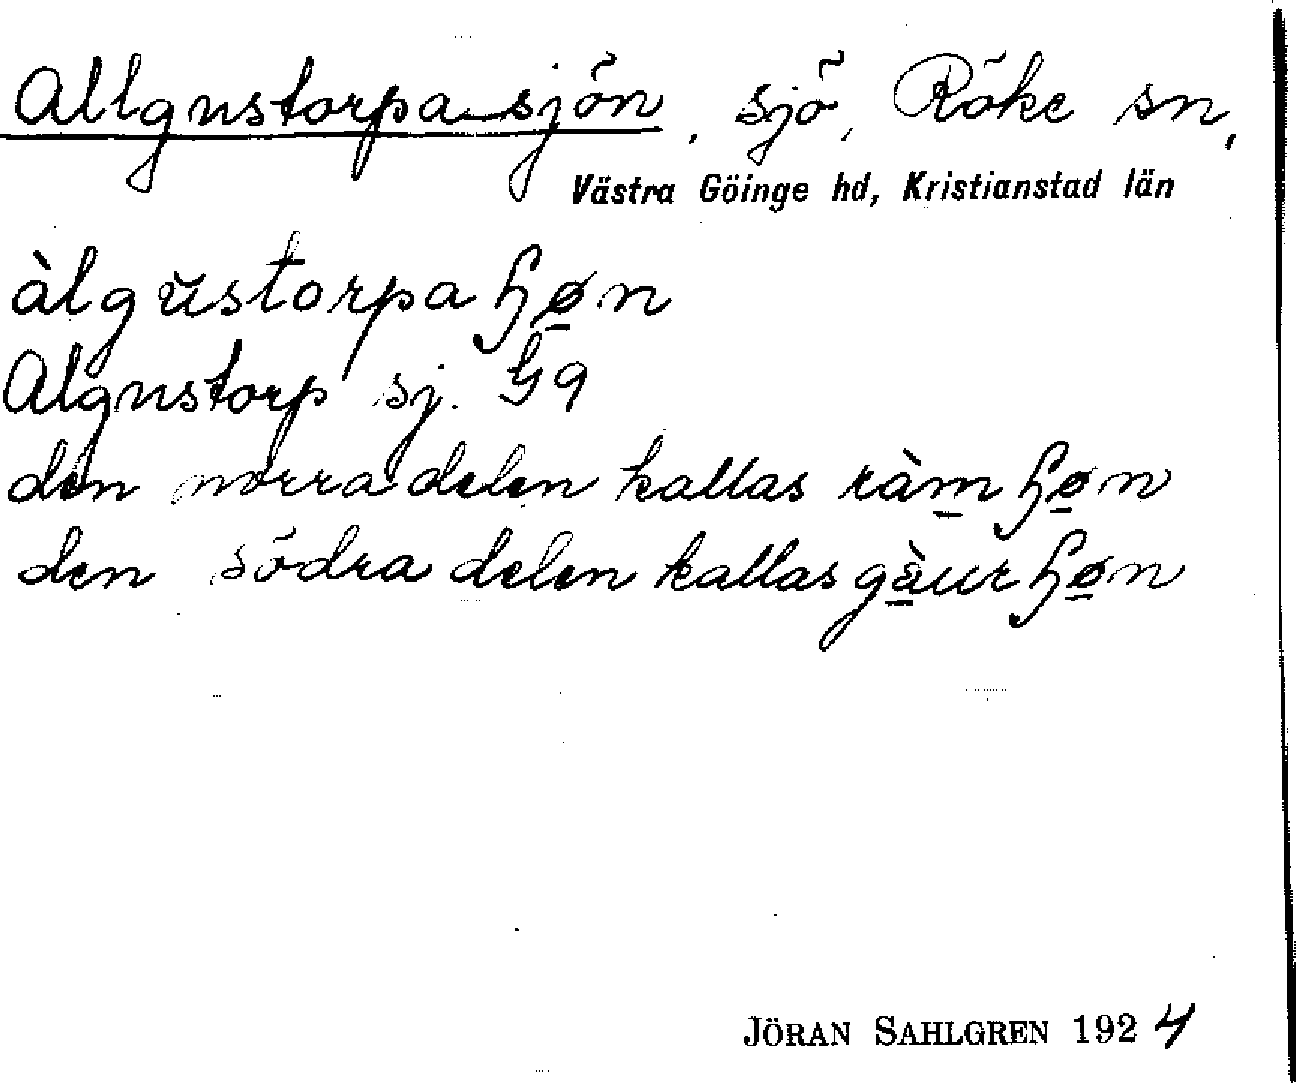 Allgustorpa-sjön, sjö, Röke sn,
Västra Göinge hd, Kristianstad län
àlgŭstorpa ɧø̲n
Algustorp sj. G9
den norra delen kallas ràm̲ɧø̲n
den södra delen kallas gà̲urɧø̲n
JÖRAN SAHLGREN 1924